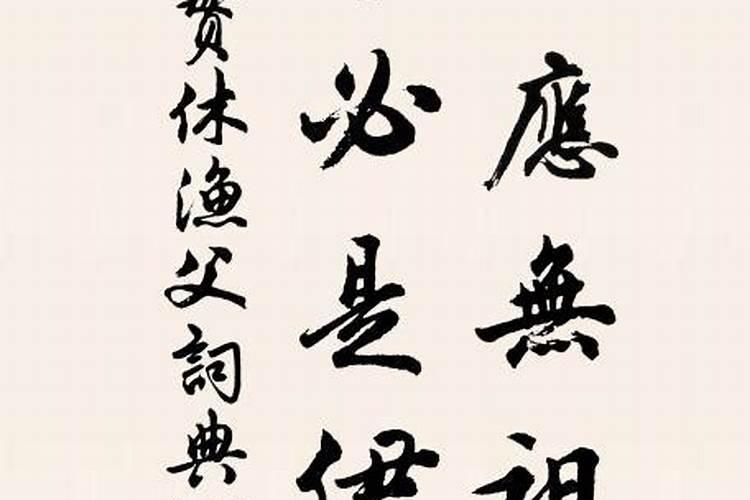 應無
必是
貫休漁父詞典